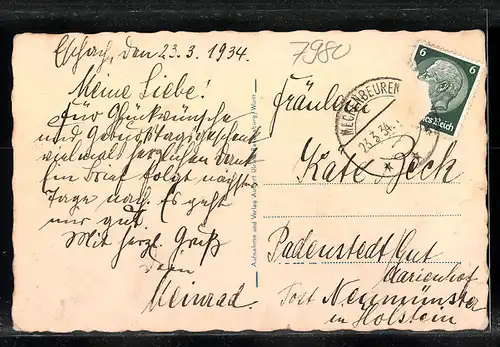 Eschach, den 23.3.1934.
Meine Liebe!
Für Glückwünsche
und Geburtstagsgeschenk
vielmals herzlichen Dank
Ein Brief folgt nächster
Tage nach. Es geht
mir gut.
Mit herzl. Gruß
Dein
Meinrad.
Aufnahme und Verlag
7980
6
6
hes Reich
MECKENBEUREN
23.3.34.
Fräulein
Käte Beck
Padenstedt/Gut
Marienhof
Post Neumünster
in Holstein